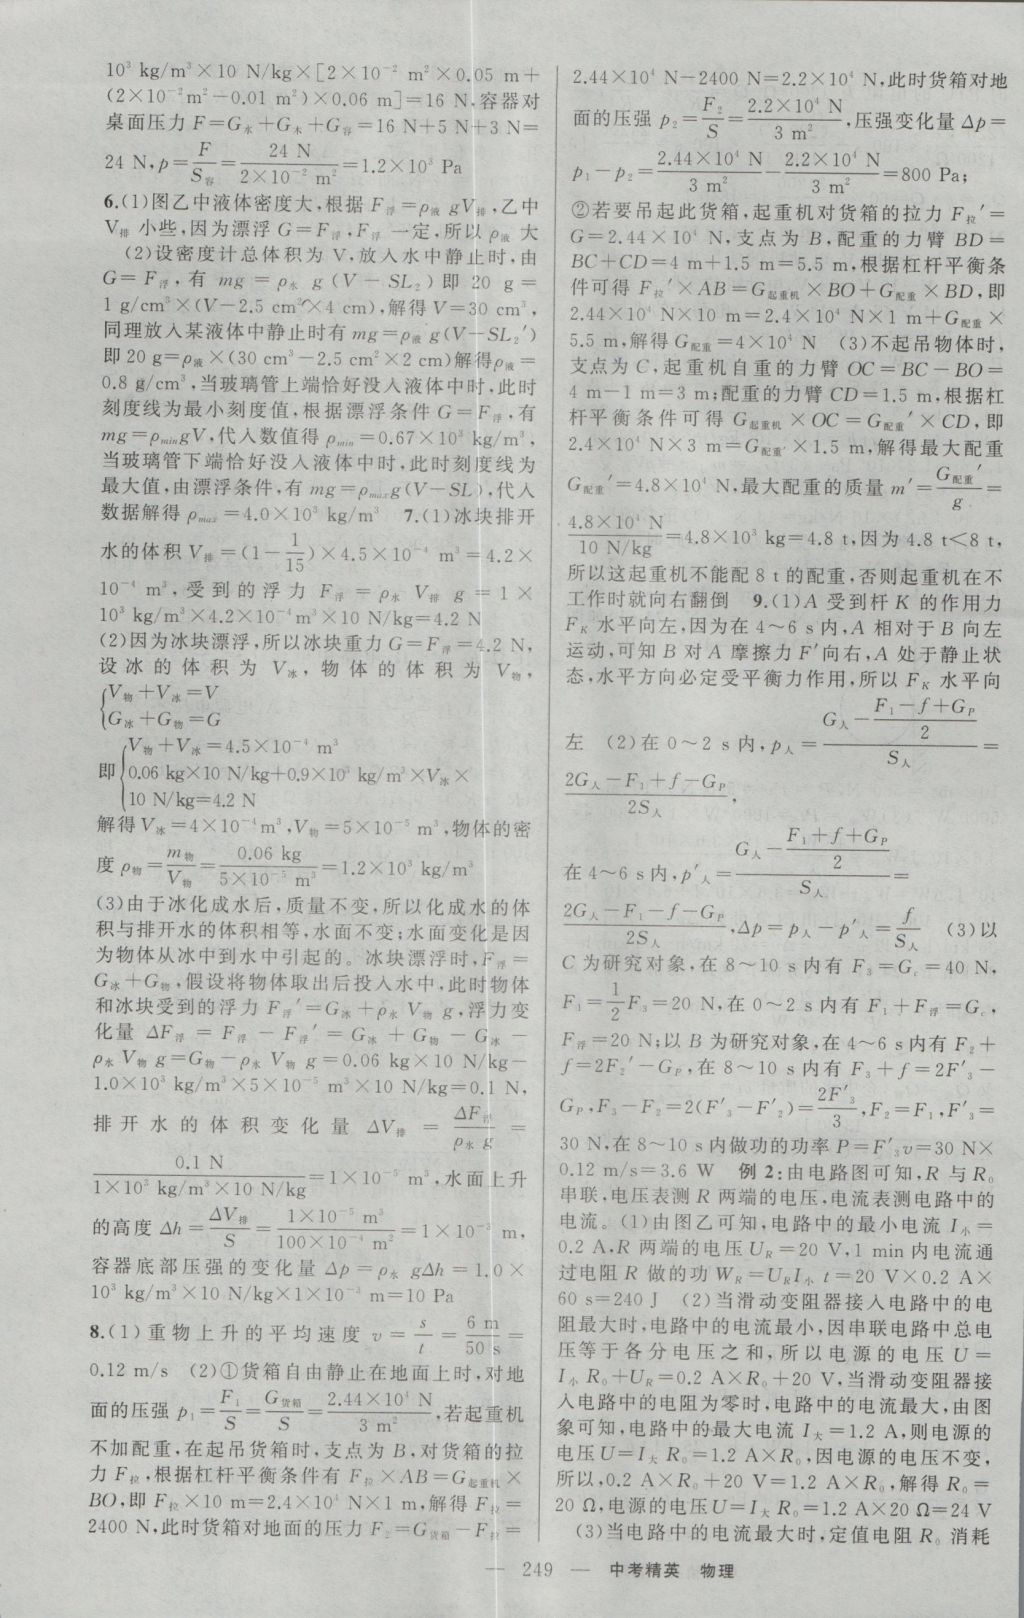 10³ kg/m³×10 N/kg×[2×10⁻² m²×0.05 m+
(2×10⁻²m²−0.01 m²)×0.06 m]=16 N,容器对
桌面压力 F=G水+G木+G容=16 N+5 N+3 N=
24 N,p=F/S容=24 N/(2×10⁻² m²)=1.2×10³ Pa
6.(1)图乙中液体密度大,根据 F浮=ρ液 gV排,乙中
V排 小些,因为漂浮 G=F浮,F浮 一定,所以 ρ液 大
(2)设密度计总体积为 V,放入水中静止时,由
G=F浮,有 mg=ρ水 g(V−SL₂)即 20 g=
1 g/cm³×(V−2.5 cm²×4 cm),解得 V=30 cm³,
同理放入某液体中静止时有 mg=ρ液 g(V−SL₂′)
即 20 g=ρ液×(30 cm³−2.5 cm²×2 cm)解得ρ液=
0.8 g/cm³,当玻璃管上端恰好没入液体中时,此时
刻度线为最小刻度值,根据漂浮条件 G=F浮,有
mg=ρmin gV,代入数值得 ρmin=0.67×10³ kg/m³,
当玻璃管下端恰好没入液体中时,此时刻度线为
最大值,由漂浮条件,有 mg=ρmax g(V−SL),代入
数据解得 ρmax=4.0×10³ kg/m³ 7.(1)冰块排开
水的体积 V排=(1−1/15)×4.5×10⁻⁴ m³=4.2×
10⁻⁴ m³,受到的浮力 F浮=ρ水 V排 g=1×
10³ kg/m³×4.2×10⁻⁴m³×10 N/kg=4.2 N
(2)因为冰块漂浮,所以冰块重力 G=F浮=4.2 N,
设冰的体积为 V冰,物体的体积为 V物,
{V物+V冰=V
G冰+G物=G
即{V物+V冰=4.5×10⁻⁴ m³
0.06 kg×10 N/kg+0.9×10³ kg/m³×V冰×
10 N/kg=4.2 N
解得 V冰=4×10⁻⁴m³,V物=5×10⁻⁵ m³,物体的密
度 ρ物=m物/V物=0.06 kg/(5×10⁻⁵ m³)=1.2×10³ kg/m³
(3)由于冰化成水后,质量不变,所以化成水的体
积与排开水的体积相等,水面不变;水面变化是因
为物体从冰中到水中引起的。冰块漂浮时,F浮=
G冰+G物,假设将物体取出后投入水中,此时物体
和冰块受到的浮力 F浮′=G冰+ρ水 V物 g,浮力变
化量 ΔF浮=F浮−F浮′=G冰+G物−G冰−
ρ水 V物 g=G物−ρ水 V物 g=0.06 kg×10 N/kg−
1.0×10³ kg/m³×5×10⁻⁵ m³×10 N/kg=0.1 N,
排开水的体积变化量 ΔV排=ΔF浮/(ρ水 g)=
0.1 N/(1×10³ kg/m³×10 N/kg)=1×10⁻⁵ m³,水面上升
的高度 Δh=ΔV排/S=1×10⁻⁵ m³/(100×10⁻⁴ m²)=1×10⁻³ m,
容器底部压强的变化量 Δp=ρ水 gΔh=1.0×
10³ kg/m³×10 N/kg×1×10⁻³ m=10 Pa
8.(1)重物上升的平均速度 v=s/t=6 m/50 s=
0.12 m/s (2)①货箱自由静止在地面上时,对地
面的压强 p₁=F₁/S=G货箱/S=2.44×10⁴ N/3 m²,若起重机
不加配重,在起吊货箱时,支点为 B,对货箱的拉
力 F拉,根据杠杆平衡条件有 F拉×AB=G起重机×
BO,即 F拉×10 m=2.4×10⁴ N×1 m,解得 F拉=
2400 N,此时货箱对地面的压力 F₂=G货箱−F拉=
2.44×10⁴ N−2400 N=2.2×10⁴ N,此时货箱对地
面的压强 p₂=F₂/S=2.2×10⁴ N/3 m²,压强变化量 Δp=
p₁−p₂=2.44×10⁴ N/3 m²−2.2×10⁴ N/3 m²=800 Pa;
②若要吊起此货箱,起重机对货箱的拉力 F拉′=
G=2.44×10⁴ N,支点为 B,配重的力臂 BD=
BC+CD=4 m+1.5 m=5.5 m,根据杠杆平衡条
件可得 F拉′×AB=G起重机×BO+G配重×BD,即
2.44×10⁴ N×10 m=2.4×10⁴ N×1 m+G配重×
5.5 m,解得 G配重=4×10⁴ N (3)不起吊物体时,
支点为 C,起重机自重的力臂 OC=BC−BO=
4 m−1 m=3 m;配重的力臂 CD=1.5 m,根据杠
杆平衡条件可得 G起重机×OC=G配重′×CD,即
2.4×10⁴ N×3 m=G配重′×1.5 m,解得最大配重
G配重′=4.8×10⁴ N,最大配重的质量 m′=G配重′/g=
4.8×10⁴ N/(10 N/kg)=4.8×10³ kg=4.8 t,因为 4.8 t<8 t,
所以这起重机不能配 8 t 的配重,否则起重机在不
工作时就向右翻倒 9.(1)A 受到杆 K 的作用力
F_K 水平向左,因为在 4~6 s内,A 相对于 B 向左
运动,可知 B 对 A 摩擦力 F′向右,A 处于静止状
态,水平方向必定受平衡力作用,所以 F_K 水平向
左 (2)在 0~2 s 内,p人=(G人−(F₁−f+G_P)/2)/S人=
(2G人−F₁+f−G_P)/2S人,
在 4~6 s内,p′人=(G人−(F₁+f+G_P)/2)/S人=
(2G人−F₁−f−G_P)/2S人,Δp=p人−p′人=f/S人 (3)以
C 为研究对象,在 8~10 s内有 F₃=G_C=40 N,
F₁=1/2F₃=20 N,在 0~2 s内有 F₁+F浮=G_c,
F浮=20 N;以 B 为研究对象,在 4~6 s内有 F₂+
f=2F₂′−G_P,在 8~10 s内有 F₃+f=2F′₃−
G_P,F₃−F₂=2(F′₃−F′₂)=2F′₃/3,F₂=F₁,F′₃=
30 N,在 8~10 s内做功的功率 P=F′₃v=30 N×
0.12 m/s=3.6 W 例 2:由电路图可知,R 与 R₀
串联,电压表测 R 两端的电压,电流表测电路中的
电流。(1)由图乙可知,电路中的最小电流 I小=
0.2 A,R 两端的电压 U_R=20 V,1 min内电流通
过电阻 R 做的功 W_R=U_R I小 t=20 V×0.2 A×
60 s=240 J (2)当滑动变阻器接入电路中的电
阻最大时,电路中的电流最小,因串联电路中总电
压等于各分电压之和,所以电源的电压 U=
I小 R₀+U_R=0.2 A×R₀+20 V,当滑动变阻器接
入电路中的电阻为零时,电路中的电流最大,由图
象可知,电路中的最大电流 I大=1.2 A,则电源的
电压 U=I大 R₀=1.2 A×R₀,因电源的电压不变,
所以,0.2 A×R₀+20 V=1.2 A×R₀,解得 R₀=
20 Ω,电源的电压 U=I大 R₀=1.2 A×20 Ω=24 V
(3)当电路中的电流最大时,定值电阻 R₀ 消耗
— 249 — 中考精英 物理